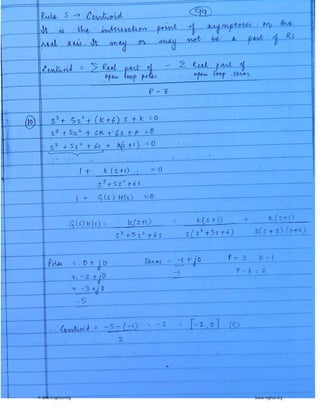 99
Rule 5 → Centroid
It is the intersection point of asymptotes on the
real axis. It may or may not be a part of RL
Centroid = Σ Real part of open loop poles - Σ Real part of open loop zeros
P - Z
10 s³ + 5s² + (K+6)s + K = 0
s³ + 5s² + sK + 6s + K = 0
s³ + 5s² + 6s + K(s+1) = 0
1 + K(s+1) = 0
s³+5s²+6s
1 + G(s) H(s) = 0
G(s)H(s) = K(s+1) = K(s+1) = K(s+1)
s³+5s²+6s s(s²+5s+6) s(s+3)(s+2)
Poles = 0+j0 Zeros = -1+j0 P=3 Z=1
= -2+j0 -1 P-Z=2
= -3+j0
-5
Centroid = -5-(-1) = -2 = [-2,0] (C)
2